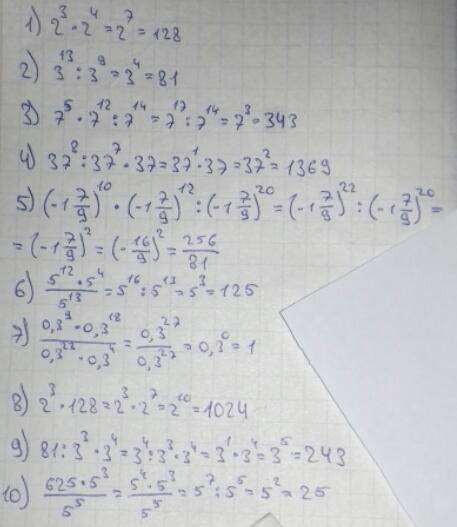 1) 2³·2⁴=2⁷=128
2) 3¹³:3⁹=3⁴=81
3) 7⁵·7¹²:7¹⁴=7¹⁷:7¹⁴=7³=343
4) 37⁸:37⁷·37=37¹·37=37²=1369
5) (-1 7/9)¹⁰·(-1 7/9)¹²:(-1 7/9)²⁰=(-1 7/9)²²:(-1 7/9)²⁰=
=(-1 7/9)²=(-16/9)²=256/81
6) 5¹²·5⁴/5¹³=5¹⁶:5¹³=5³=125
7) 0,3⁹·0,3¹⁸/0,3²³·0,3⁴=0,3²⁷/0,3²⁷=0,3⁰=1
8) 2³·128=2³·2⁷=2¹⁰=1024
9) 81:3³·3⁴=3⁴:3³·3⁴=3¹·3⁴=3⁵=243
10) 625·5³/5⁵=5⁴·5³/5⁵=5⁷:5⁵=5²=25